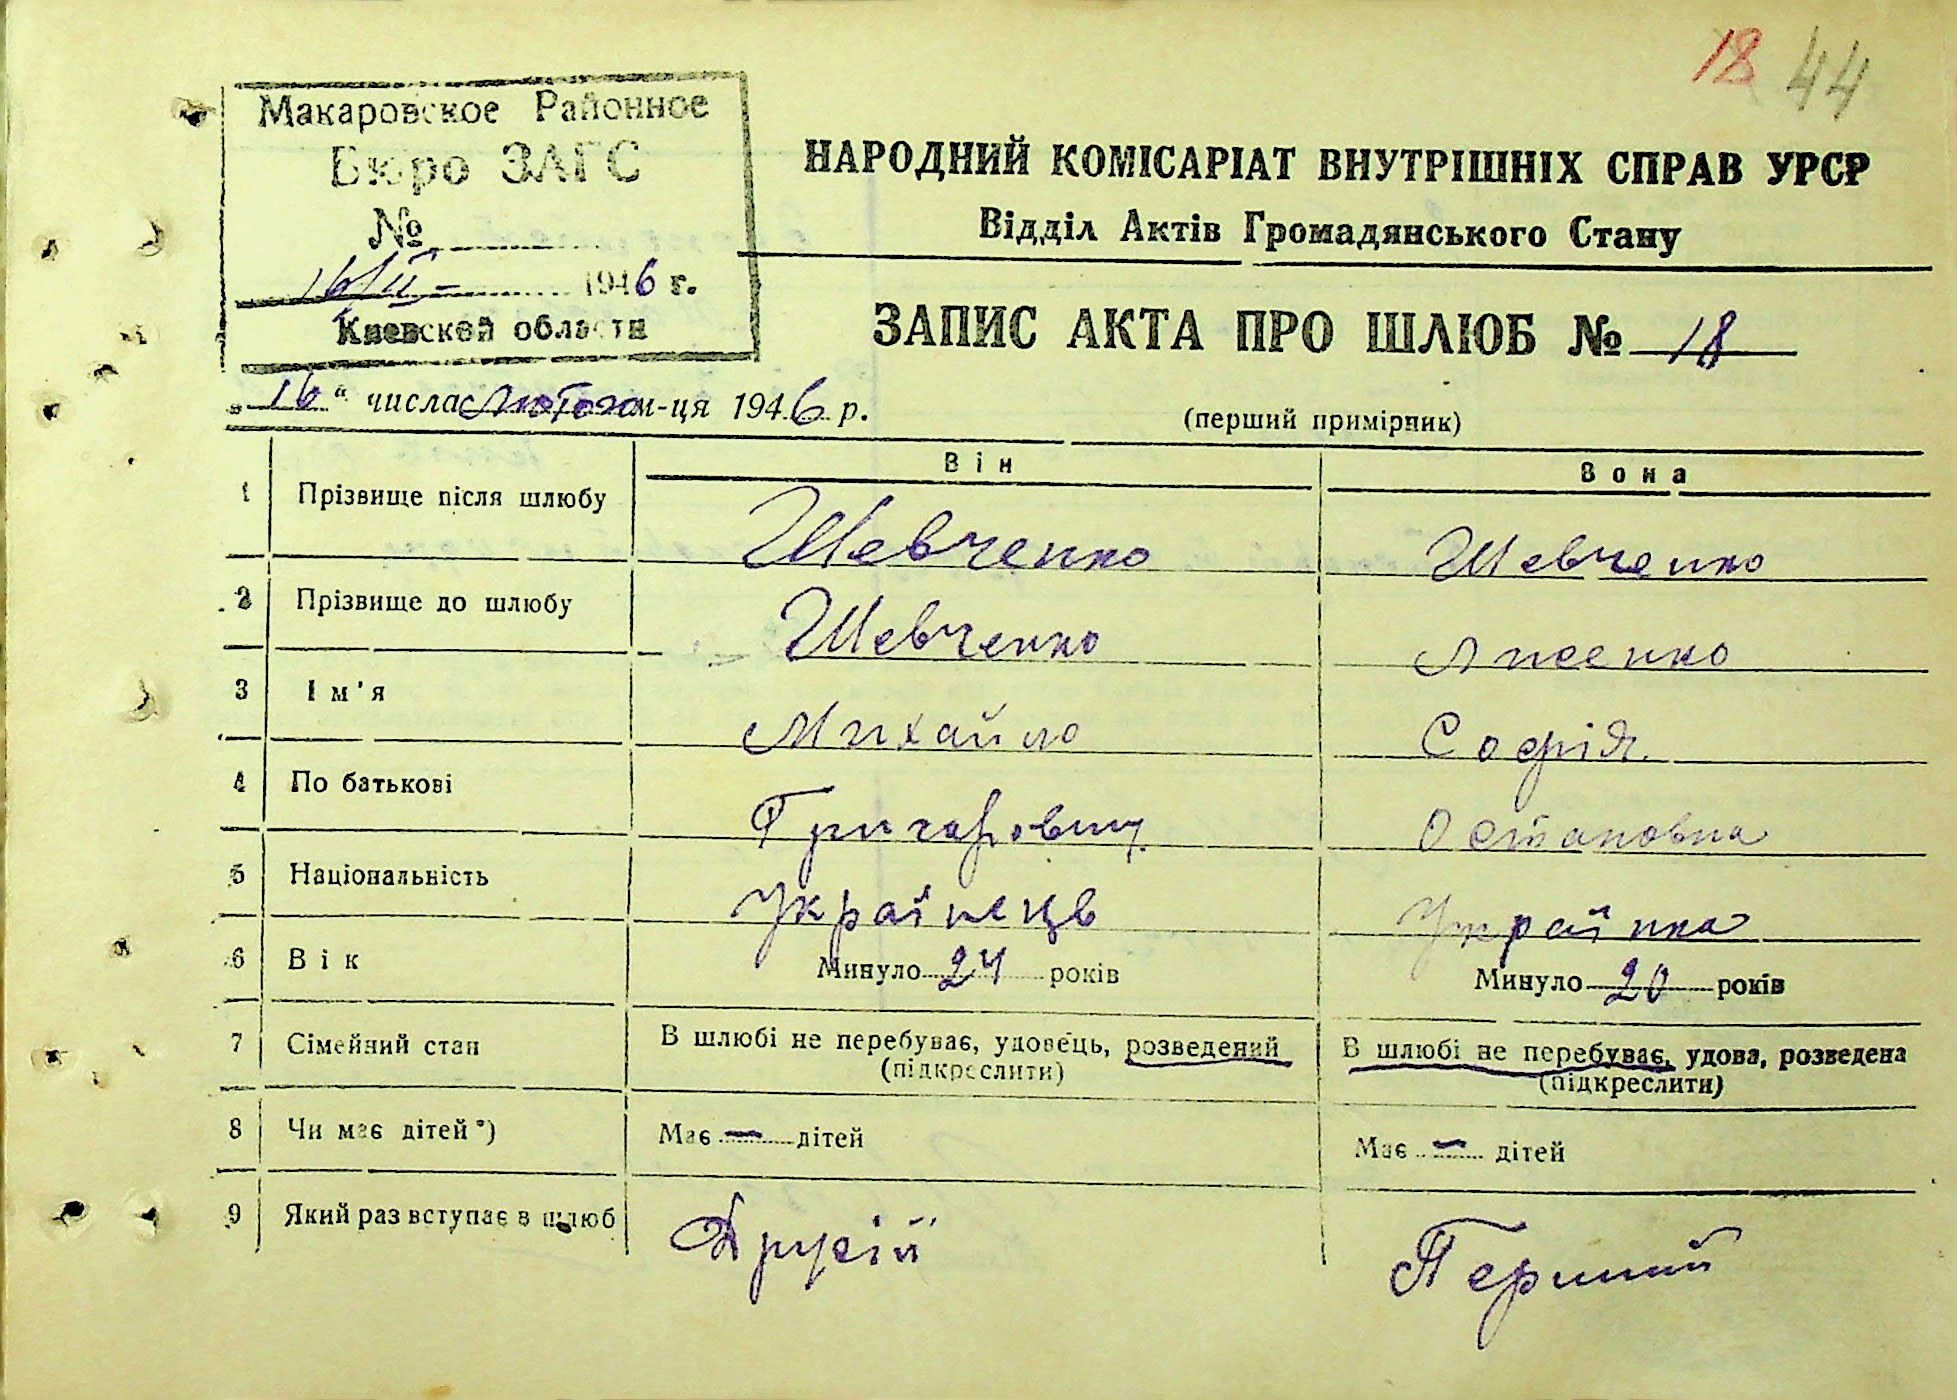 18 44
Макаровское Районное
Бюро ЗАГС
№
16/II - 1946 г.
Киевской области
НАРОДНИЙ КОМІСАРІАТ ВНУТРІШНІХ СПРАВ УРСР
Відділ Актів Громадянського Стану
ЗАПИС АКТА ПРО ШЛЮБ № 18
„16“ числа Лютого м-ця 1946 р.
(перший примірник)
Він Вона
1 Прізвище після шлюбу Шевченко Шевченко
2 Прізвище до шлюбу Шевченко
3 Ім'я Михайло Софія
4 По батькові Григорович Остаповна
5 Національність Українець Українка
6 Вік Минуло 24 років Минуло 20 років
7 Сімейний стан В шлюбі не перебуває, удовець, розведений В шлюбі не перебуває, удова, розведена
(підкреслити) (підкреслити)
8 Чи має дітей*) Має — дітей Має — дітей
9 Який раз вступає в шлюб Другій Перший